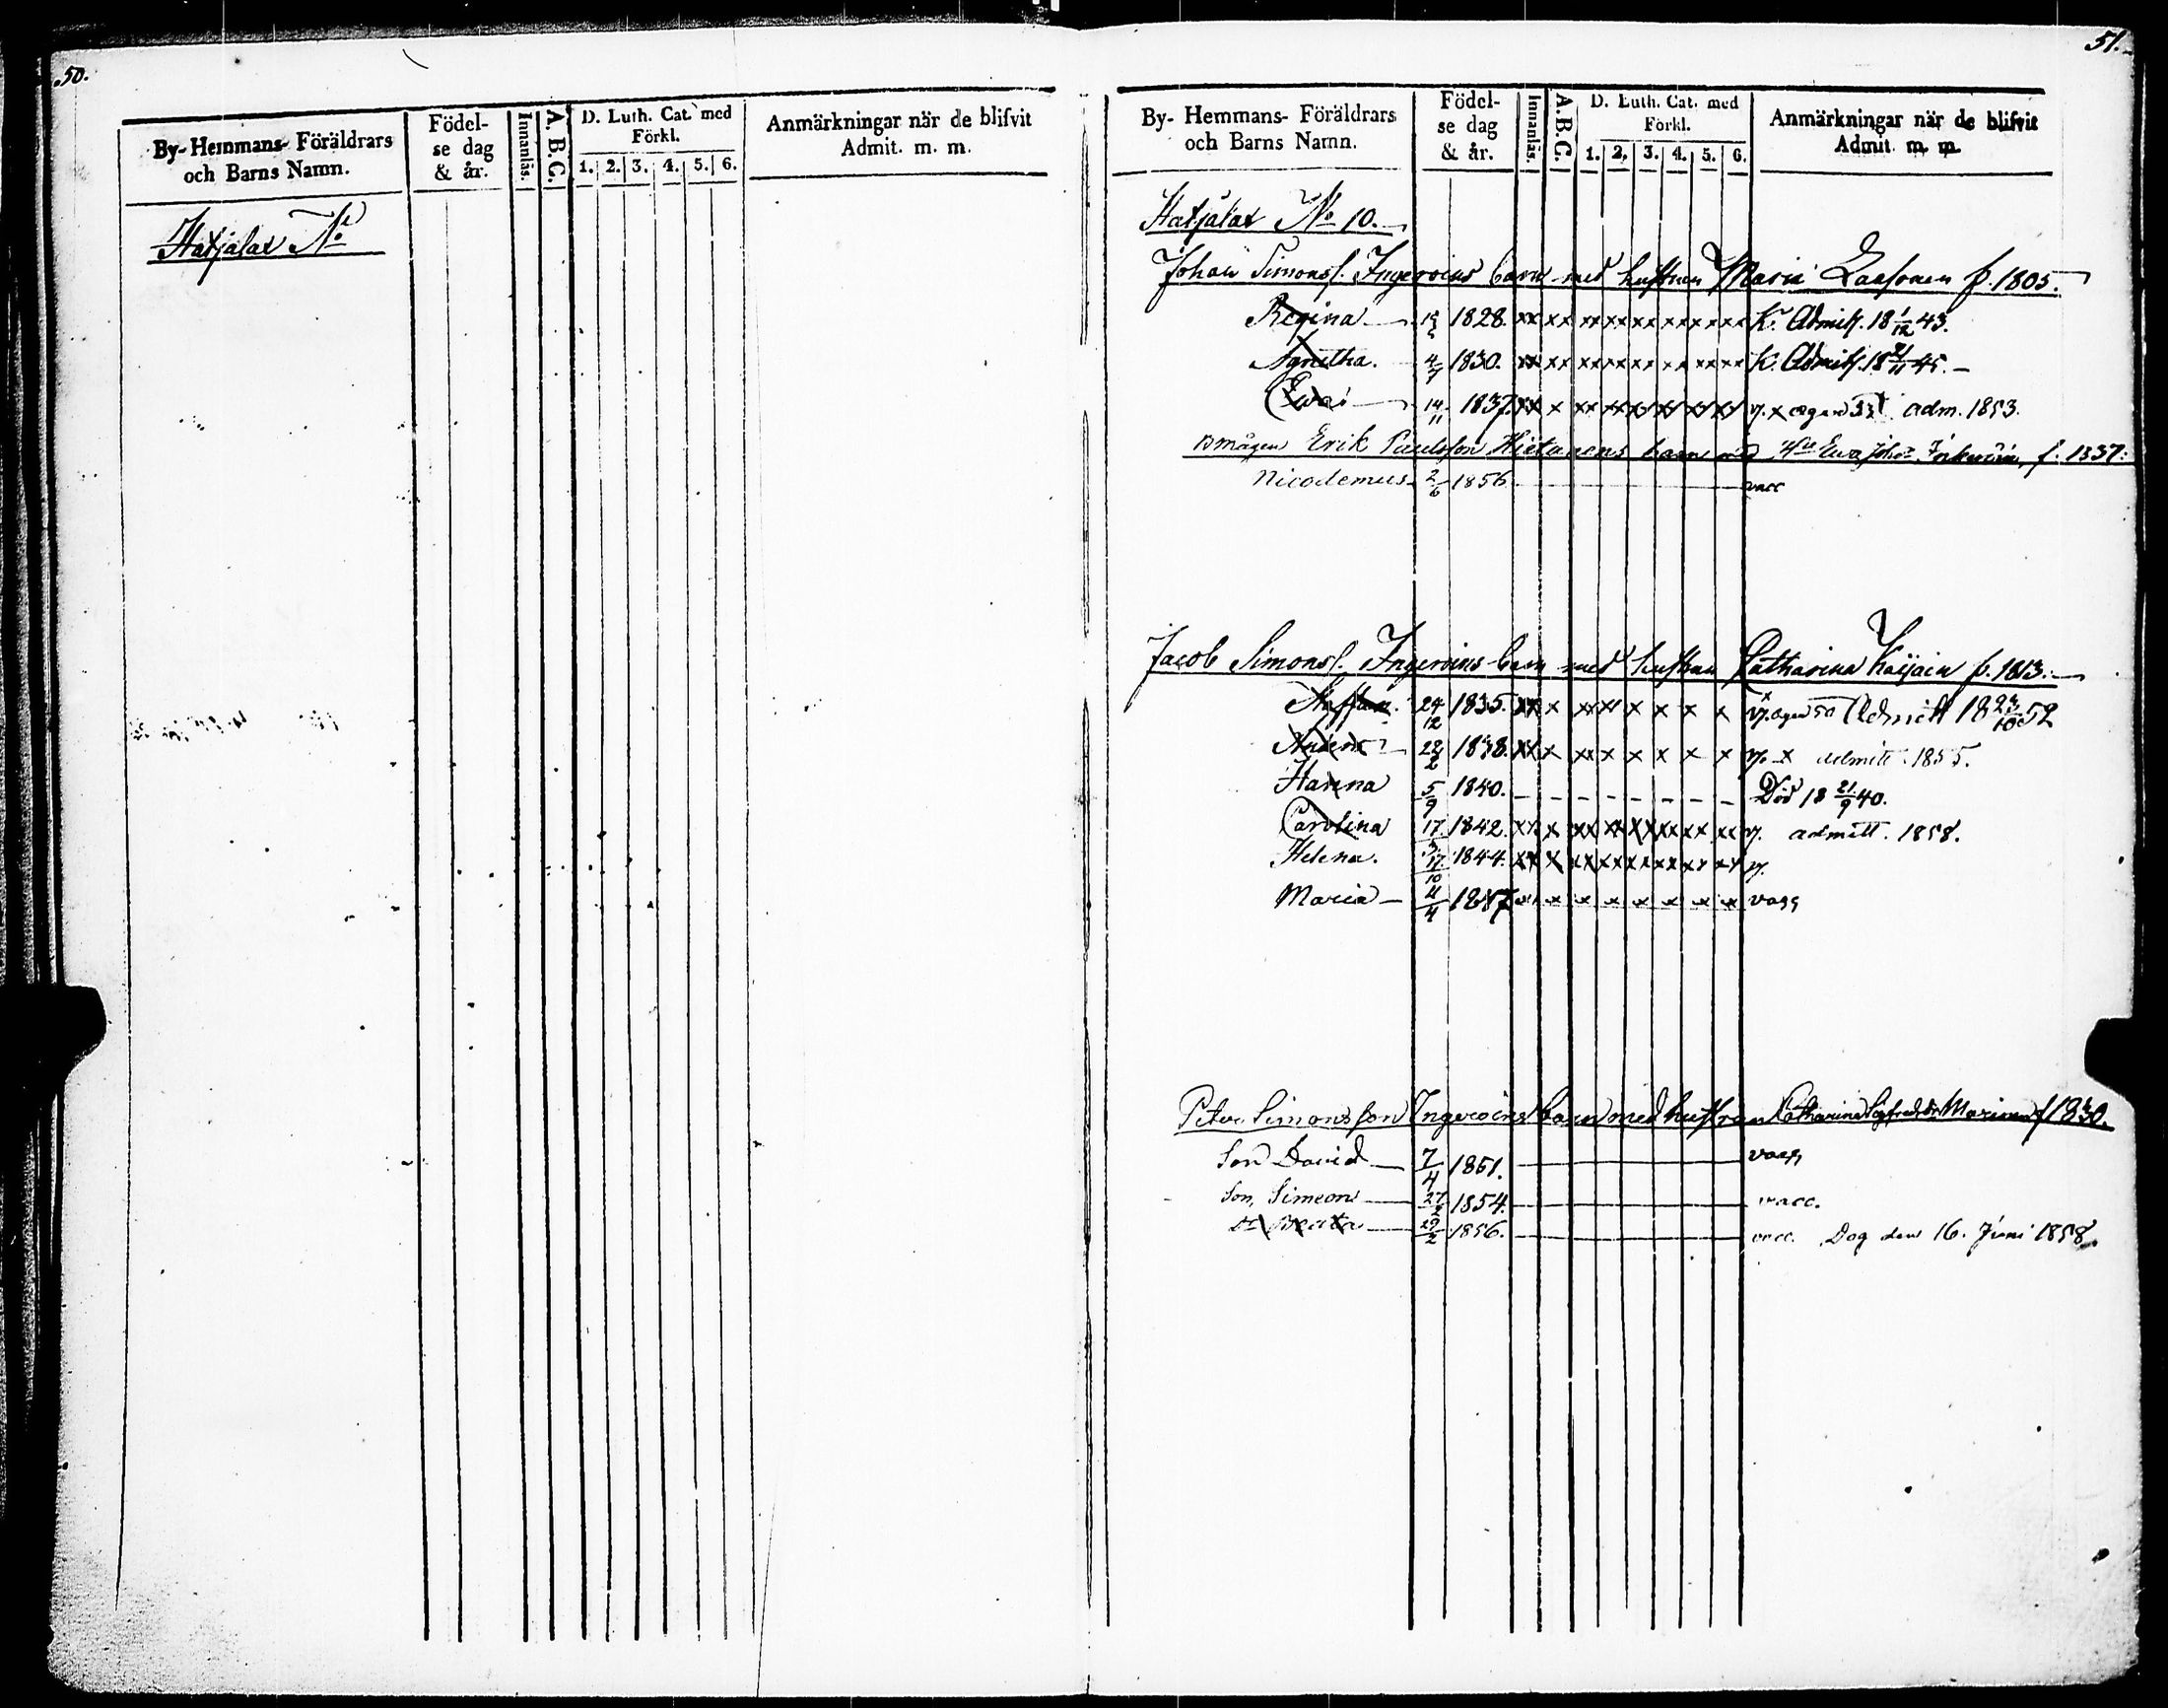 50.
By- Hemmans- Föräldrars och Barns Namn.
Födelse dag & år.
Innanläs.
A. B. C.
D. Luth. Cat. med Förkl.
1. 2. 3. 4. 5. 6.
Anmärkningar när de blifvit Admit. m. m.
Hatjalax No
51.
By- Hemmans- Föräldrars och Barns Namn.
Födelse dag & år.
Innanläs.
A. B. C.
D. Luth. Cat. med Förkl.
1. 2. 3. 4. 5. 6.
Anmärkningar när de blifvit Admit. m. m.
Hatjalax No 10.
Johan Simonss. Ingeroins barn med hustrun Maria f. 1805.
Regina 1828. xx xx xx xx xx xx xx xx Admitt. 18 1/12 43.
Agnetha. 4/7 1830. xx xx xx xx xx xx xx xx Admitt. 18 21/11 45.
Ewa 14/11 1837. xx x xx xx xx xx xx xx v. x adm. 1853.
måger Erik Paulsson Hietanens barn med Ewa f. 1837.
Nicodemus 2/6 1856. vacc
Jacob Simonss. Ingeroins barn med hustrun Catharina f. 1813.
Staffan. 24/12 1835. xx x xx x x x x v. Admitt 18 23/10 52
22/2 1838. xx x xx x x x x x v. x admitt. 1855.
Hanna 5/9 1840. - - - - - - - - Död 18 21/9 40.
Carolina 17 1842. xx x xx xx xx xx xx xx v. admitt. 1858.
Helena. 17/10 1844. xx x xx xx xx xx xx xx v.
Maria 4/4 1847 x x x x x x x vacc
Peter Simonsson Ingeroins barn med hustrun Catharina Sigfredsdr f 1830.
Son David 7/4 1851. vacc
Son, Simeon 27/2 1854. vacc.
Dr Beata 29/2 1856. vacc. Dog den 16. Juni 1858.